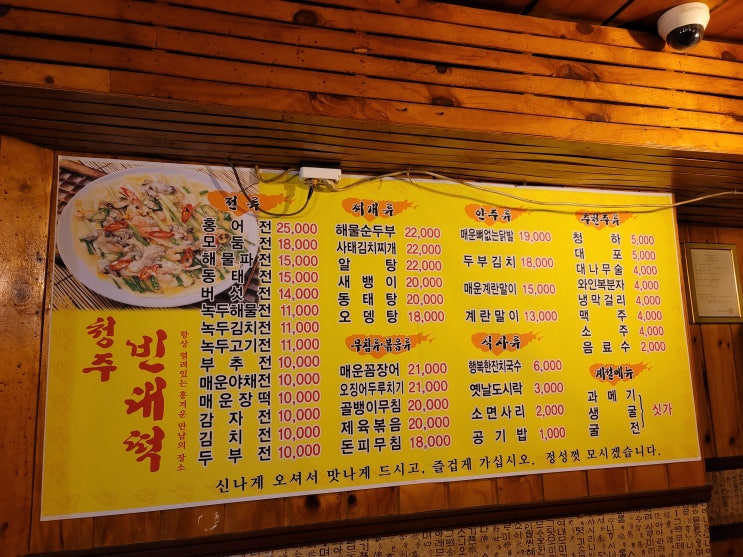 전류
홍어전 25,000
모둠전 18,000
해물파전 15,000
동태전 15,000
버섯전 14,000
녹두해물전 11,000
녹두김치전 11,000
녹두고기전 11,000
부추전 10,000
매운야채전 10,000
매운장떡전 10,000
감자전 10,000
김치전 10,000
두부전 10,000
찌개류
해물순두부 22,000
사태김치찌개 22,000
알탕 22,000
새뱅이 20,000
동태탕 20,000
오뎅탕 18,000
무침류·볶음류
매운꼼장어 21,000
오징어두루치기 21,000
골뱅이무침 20,000
제육볶음 20,000
돈피무침 18,000
안주류
매운뼈없는닭발 19,000
두부김치 18,000
매운계란말이 15,000
계란말이 13,000
식사류
행복한잔치국수 6,000
옛날도시락 3,000
소면사리 2,000
공기밥 1,000
음료수 2,000
청하 5,000
대포 5,000
대나무술 4,000
와인복분자 4,000
냉막걸리 4,000
맥주 4,000
소주 4,000
계절메뉴
과메기
생굴
굴전
싯가
청주
빈대떡
항상 열려있는 흥겨운 만남의 장소
신나게 오셔서 맛나게 드시고, 즐겁게 가십시오. 정성껏 모시겠습니다.